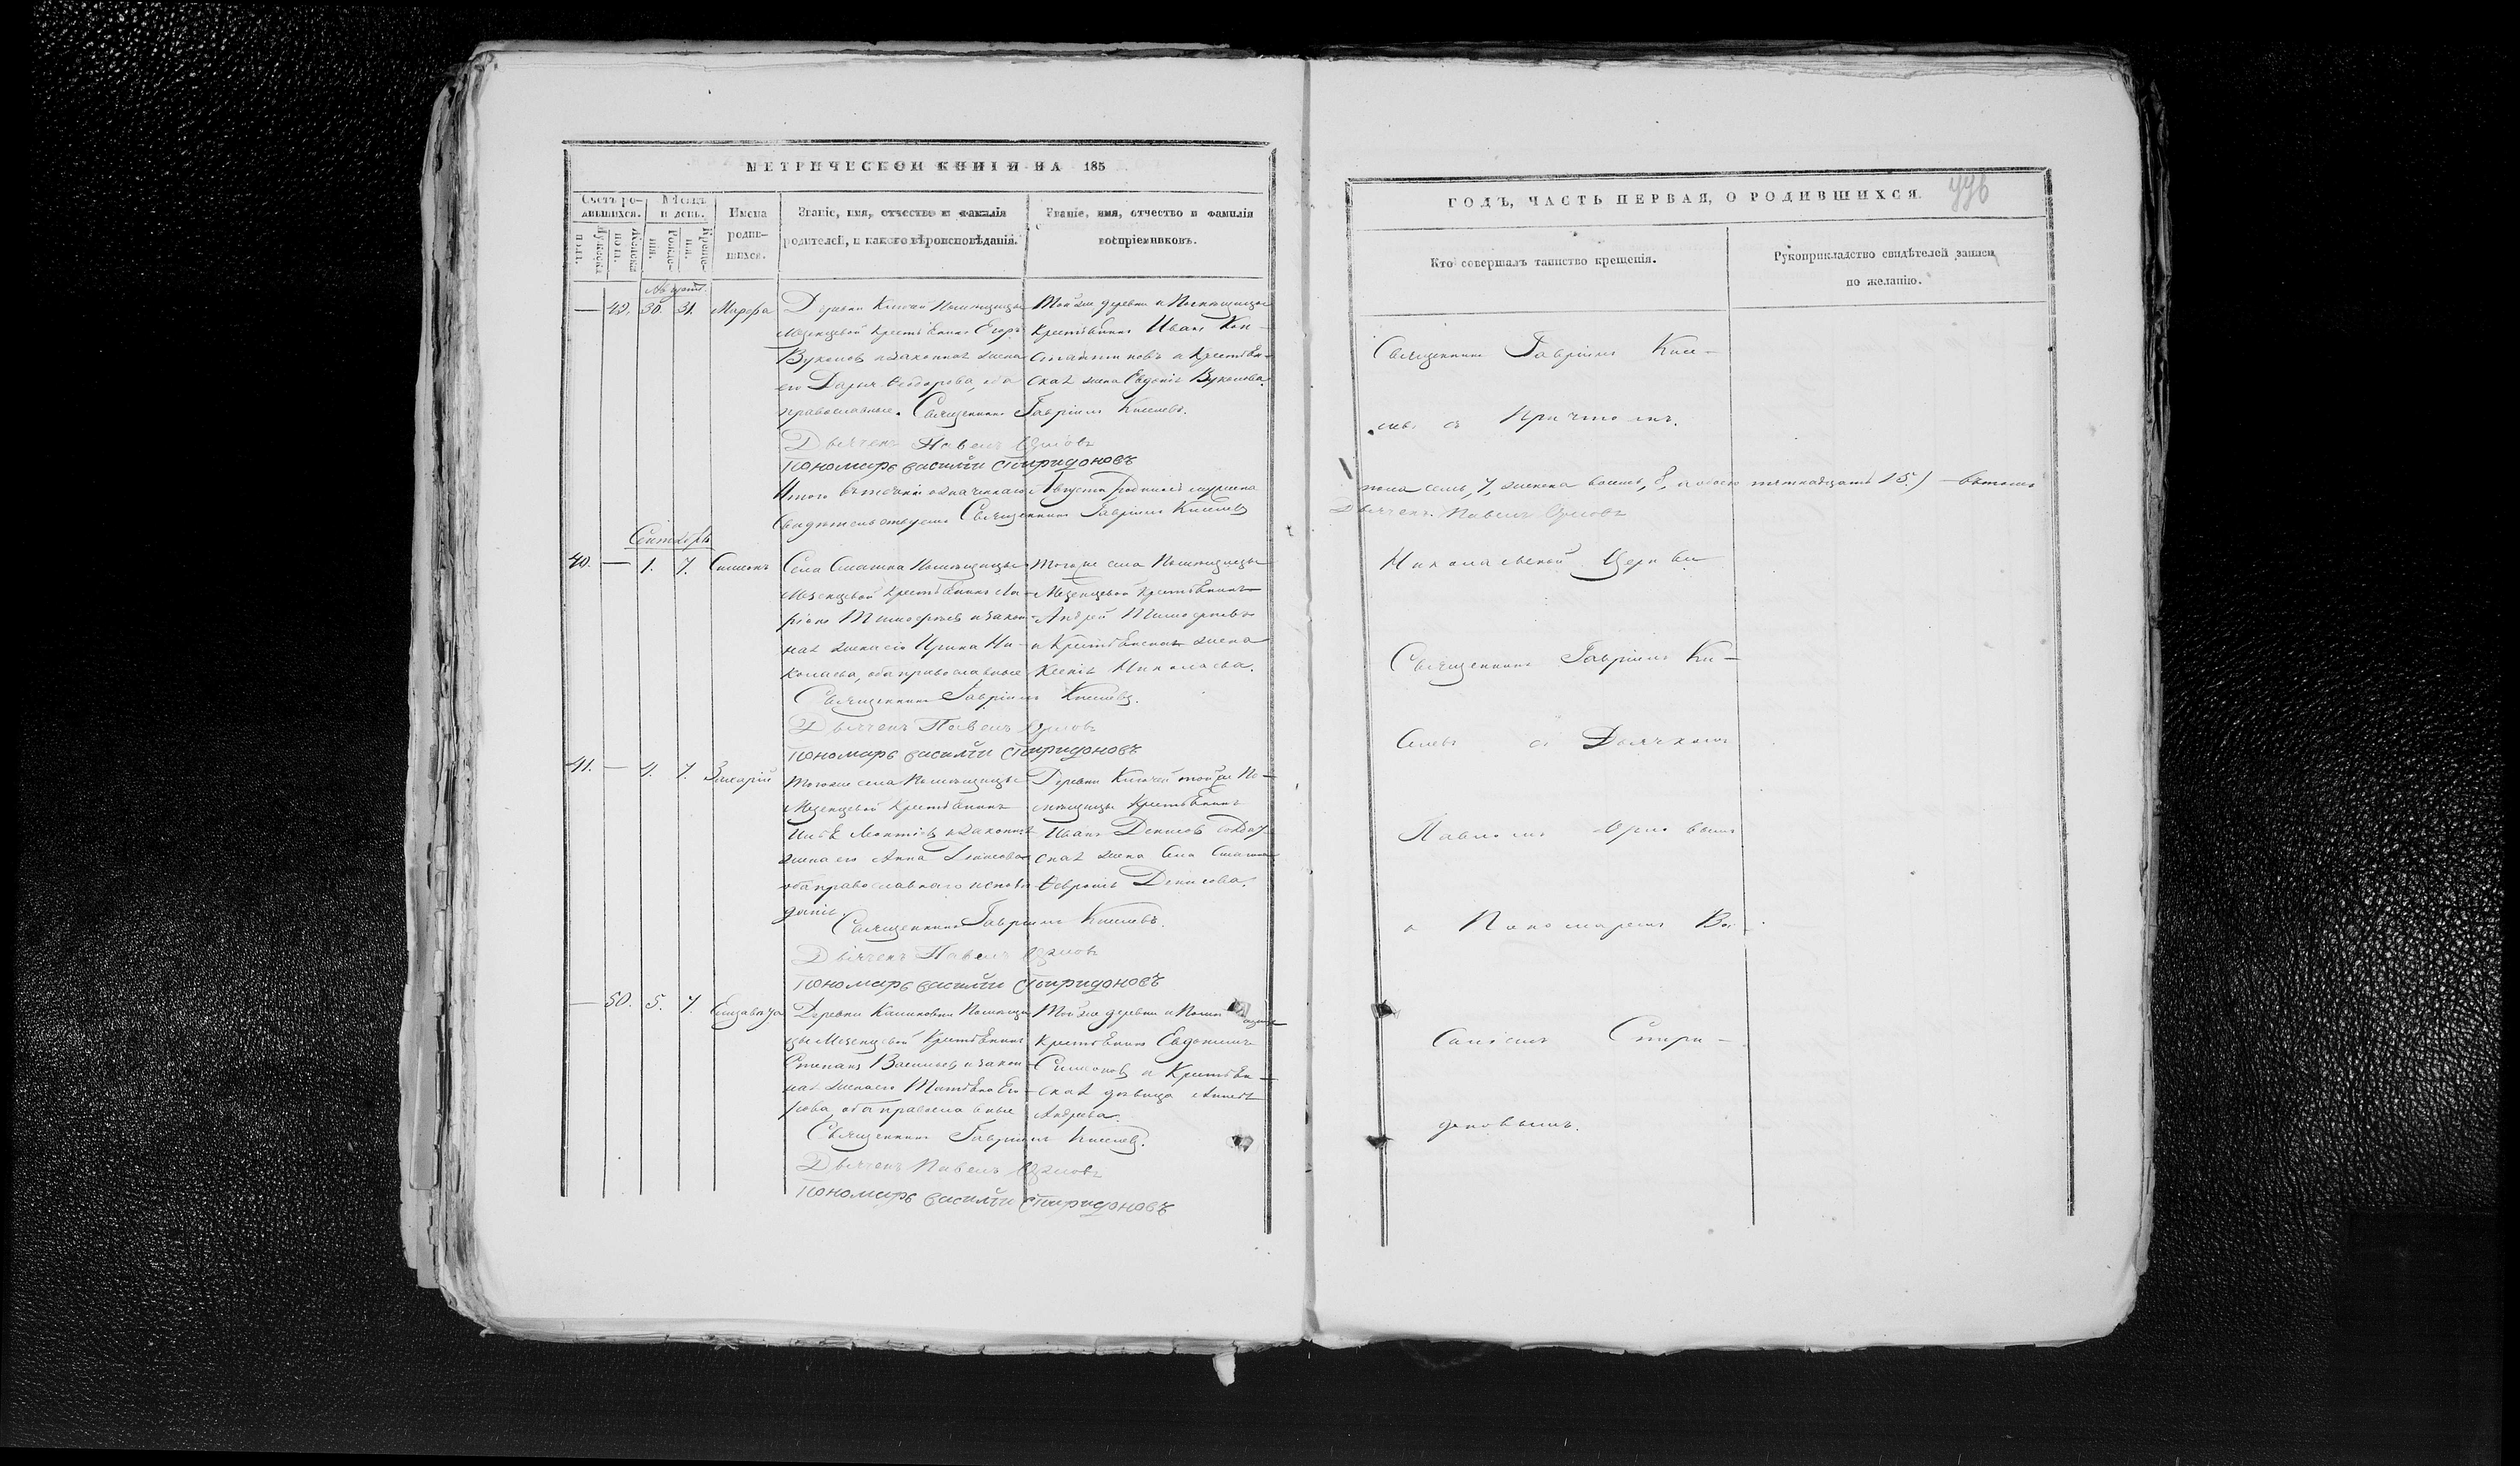 МЕТРИЧЕСКОЙ КНИГИ НА 185
Счетъ ро-
дившихся.
Мужеска
пола.
Женска
пола.
Мѣсяцъ
и день.
Рожде-
нія.
Креще-
нія.
Имена
родив-
шихся.
Званіе, имя, отчество и фамилія
родителей, и какого вѣроисповѣданія.
Званіе, имя, отчество и фамилія
воспріемниковъ.
Августъ
— 49. 30. 31. Марѳа
Деревни Ключей Помѣщицы
Мезенцевой Крестьянинъ Егоръ
Вуколовъ и законная жена
его Дарья Ѳеодорова, оба
православные. Священникъ Гавріилъ Киселевъ.
Дьячекъ Павелъ Орловъ
Пономарь Василій Спиридоновъ
Той же деревни и Помѣщицы
Крестьянинъ Иванъ Кон-
стантиновъ и Крестьян-
ская жена Евдокія Вуколова.
Итого въ теченіи означеннаго Августа родилось мужеска
Свидѣтельствуемъ Священникъ Гавріилъ Киселевъ
Сентябрь
40. — 1. 7. Симеонъ
Села Помѣщицы
Мезенцевой Крестьянинъ Ла-
ріонъ Тимоѳеевъ и закон-
ная жена его Ирина Ни-
колаева, оба православные
Священникъ Гавріилъ Киселевъ.
Дьячекъ Павелъ Орловъ
Пономарь Василій Спиридоновъ
Того же села Помѣщицы
Мезенцевой Крестьянинъ
Андрей Тимоѳеевъ
и Крестьянская жена
Ксенія Николаева.
41. — 4. 7. Захарій
Того же села Помѣщицы
Мезенцевой Крестьянинъ
Леонтьевъ и законная
жена его Анна Денисова
оба православнаго исповѣ-
данія.
Священникъ Гавріилъ Киселевъ.
Дьячекъ Павелъ Орловъ
Пономарь Василій Спиридоновъ
Деревни Ключей той же По-
мѣщицы Крестьянинъ
Иванъ Денисовъ
ская жена Села
Ѳевронія Денисова.
— 50. 5. 7. Елизавета
Деревни Помѣщи-
цы Мезенцевой Крестьянинъ
Степанъ Васильевъ и закон-
ная жена его Татьяна Его-
рова, оба православные
Священникъ Гавріилъ Киселевъ.
Дьячекъ Павелъ Орловъ
Пономарь Василій Спиридоновъ
Той же деревни и Помѣщицы
Крестьянинъ Евдокимъ
Симоновъ и Крестьян-
ская дѣвица
Андреева.
ГОДЪ, ЧАСТЬ ПЕРВАЯ, О РОДИВШИХСЯ.
Кто совершалъ таинство крещенія.
Рукоприкладство свидѣтелей записи
по желанію.
Священникъ Гавріилъ Кисе-
левъ съ Причтомъ.
пола семь, 7, женска восемь, 8, а обоего пятнадцать 15.)
Дьячекъ Павелъ Орловъ
Николаевской Церкви
Священникъ Гавріилъ Ки-
селевъ съ Дьячкомъ
Павломъ Орловымъ
и Пономаремъ Ва-
силіемъ Спири-
доновымъ.